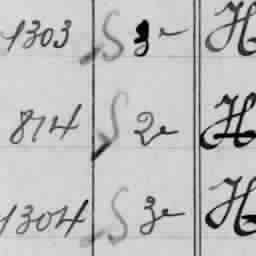 1303 S 3e H
814 S 2e H
1304 S 3e H